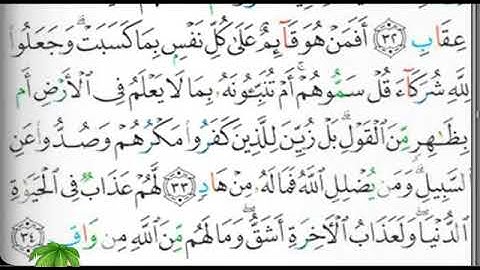 عِقَابِ ٣٢ أَفَمَنْ هُوَ قَآئِمٌ عَلَىٰ كُلِّ نَفْسٍۭ بِمَا كَسَبَتْ ۗ وَجَعَلُوا۟
لِلَّهِ شُرَكَآءَ قُلْ سَمُّوهُمْ ۚ أَمْ تُنَبِّـُٔونَهُۥ بِمَا لَا يَعْلَمُ فِى ٱلْأَرْضِ أَم
بِظَـٰهِرٍ مِّنَ ٱلْقَوْلِ ۗ بَلْ زُيِّنَ لِلَّذِينَ كَفَرُوا۟ مَكْرُهُمْ وَصُدُّوا۟ عَنِ
ٱلسَّبِيلِ ۗ وَمَن يُضْلِلِ ٱللَّهُ فَمَا لَهُۥ مِنْ هَادٍ ٣٣ لَّهُمْ عَذَابٌ فِى ٱلْحَيَوٰةِ
ٱلدُّنْيَا ۖ وَلَعَذَابُ ٱلْـَٔاخِرَةِ أَشَقُّ ۖ وَمَا لَهُم مِّنَ ٱللَّهِ مِن وَاقٍ ٣٤